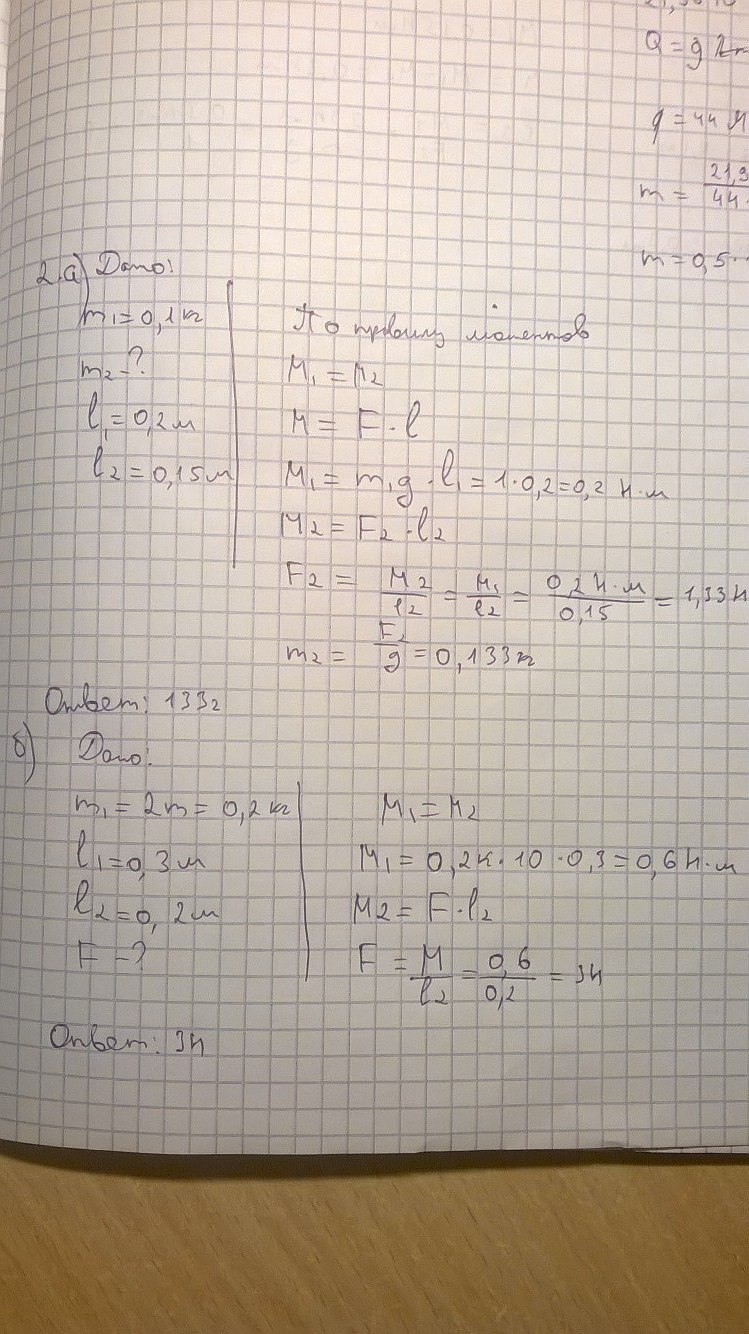 Q = g
q = 44 М
m = 21,9 / 44.
m = 0,5
2.а) Дано:
m₁ = 0,1 кг
m₂ - ?
l₁ = 0,2 м
l₂ = 0,15 м
По правилу моментов
M₁ = M₂
M = F · l
M₁ = m₁g · l₁ = 1 · 0,2 = 0,2 Н · м
M₂ = F₂ · l₂
F₂ = M₂ / l₂ = M₁ / l₂ = 0,2 Н · м / 0,15 = 1,33 Н
m₂ = F₂ / g = 0,133 кг
Ответ: 133 г
б) Дано:
m₁ = 2m = 0,2 кг
l₁ = 0,3 м
l₂ = 0,2 м
F - ?
M₁ = M₂
M₁ = 0,2 к · 10 · 0,3 = 0,6 Н · м
M₂ = F · l₂
F = M / l₂ = 0,6 / 0,2 = 3Н
Ответ: 3Н